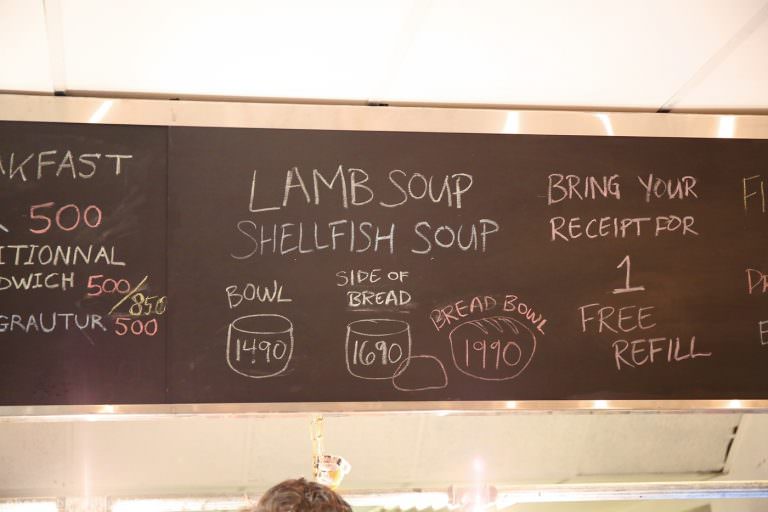 KFAST
500
ITIONNAL
DWICH 500/850
GRAUTUR 500
LAMB SOUP
SHELLFISH SOUP
BOWL
1490
SIDE OF
BREAD
1690
BREAD BOWL
1990
BRING YOUR
RECEIPT FOR
1
FREE
REFILL
FI